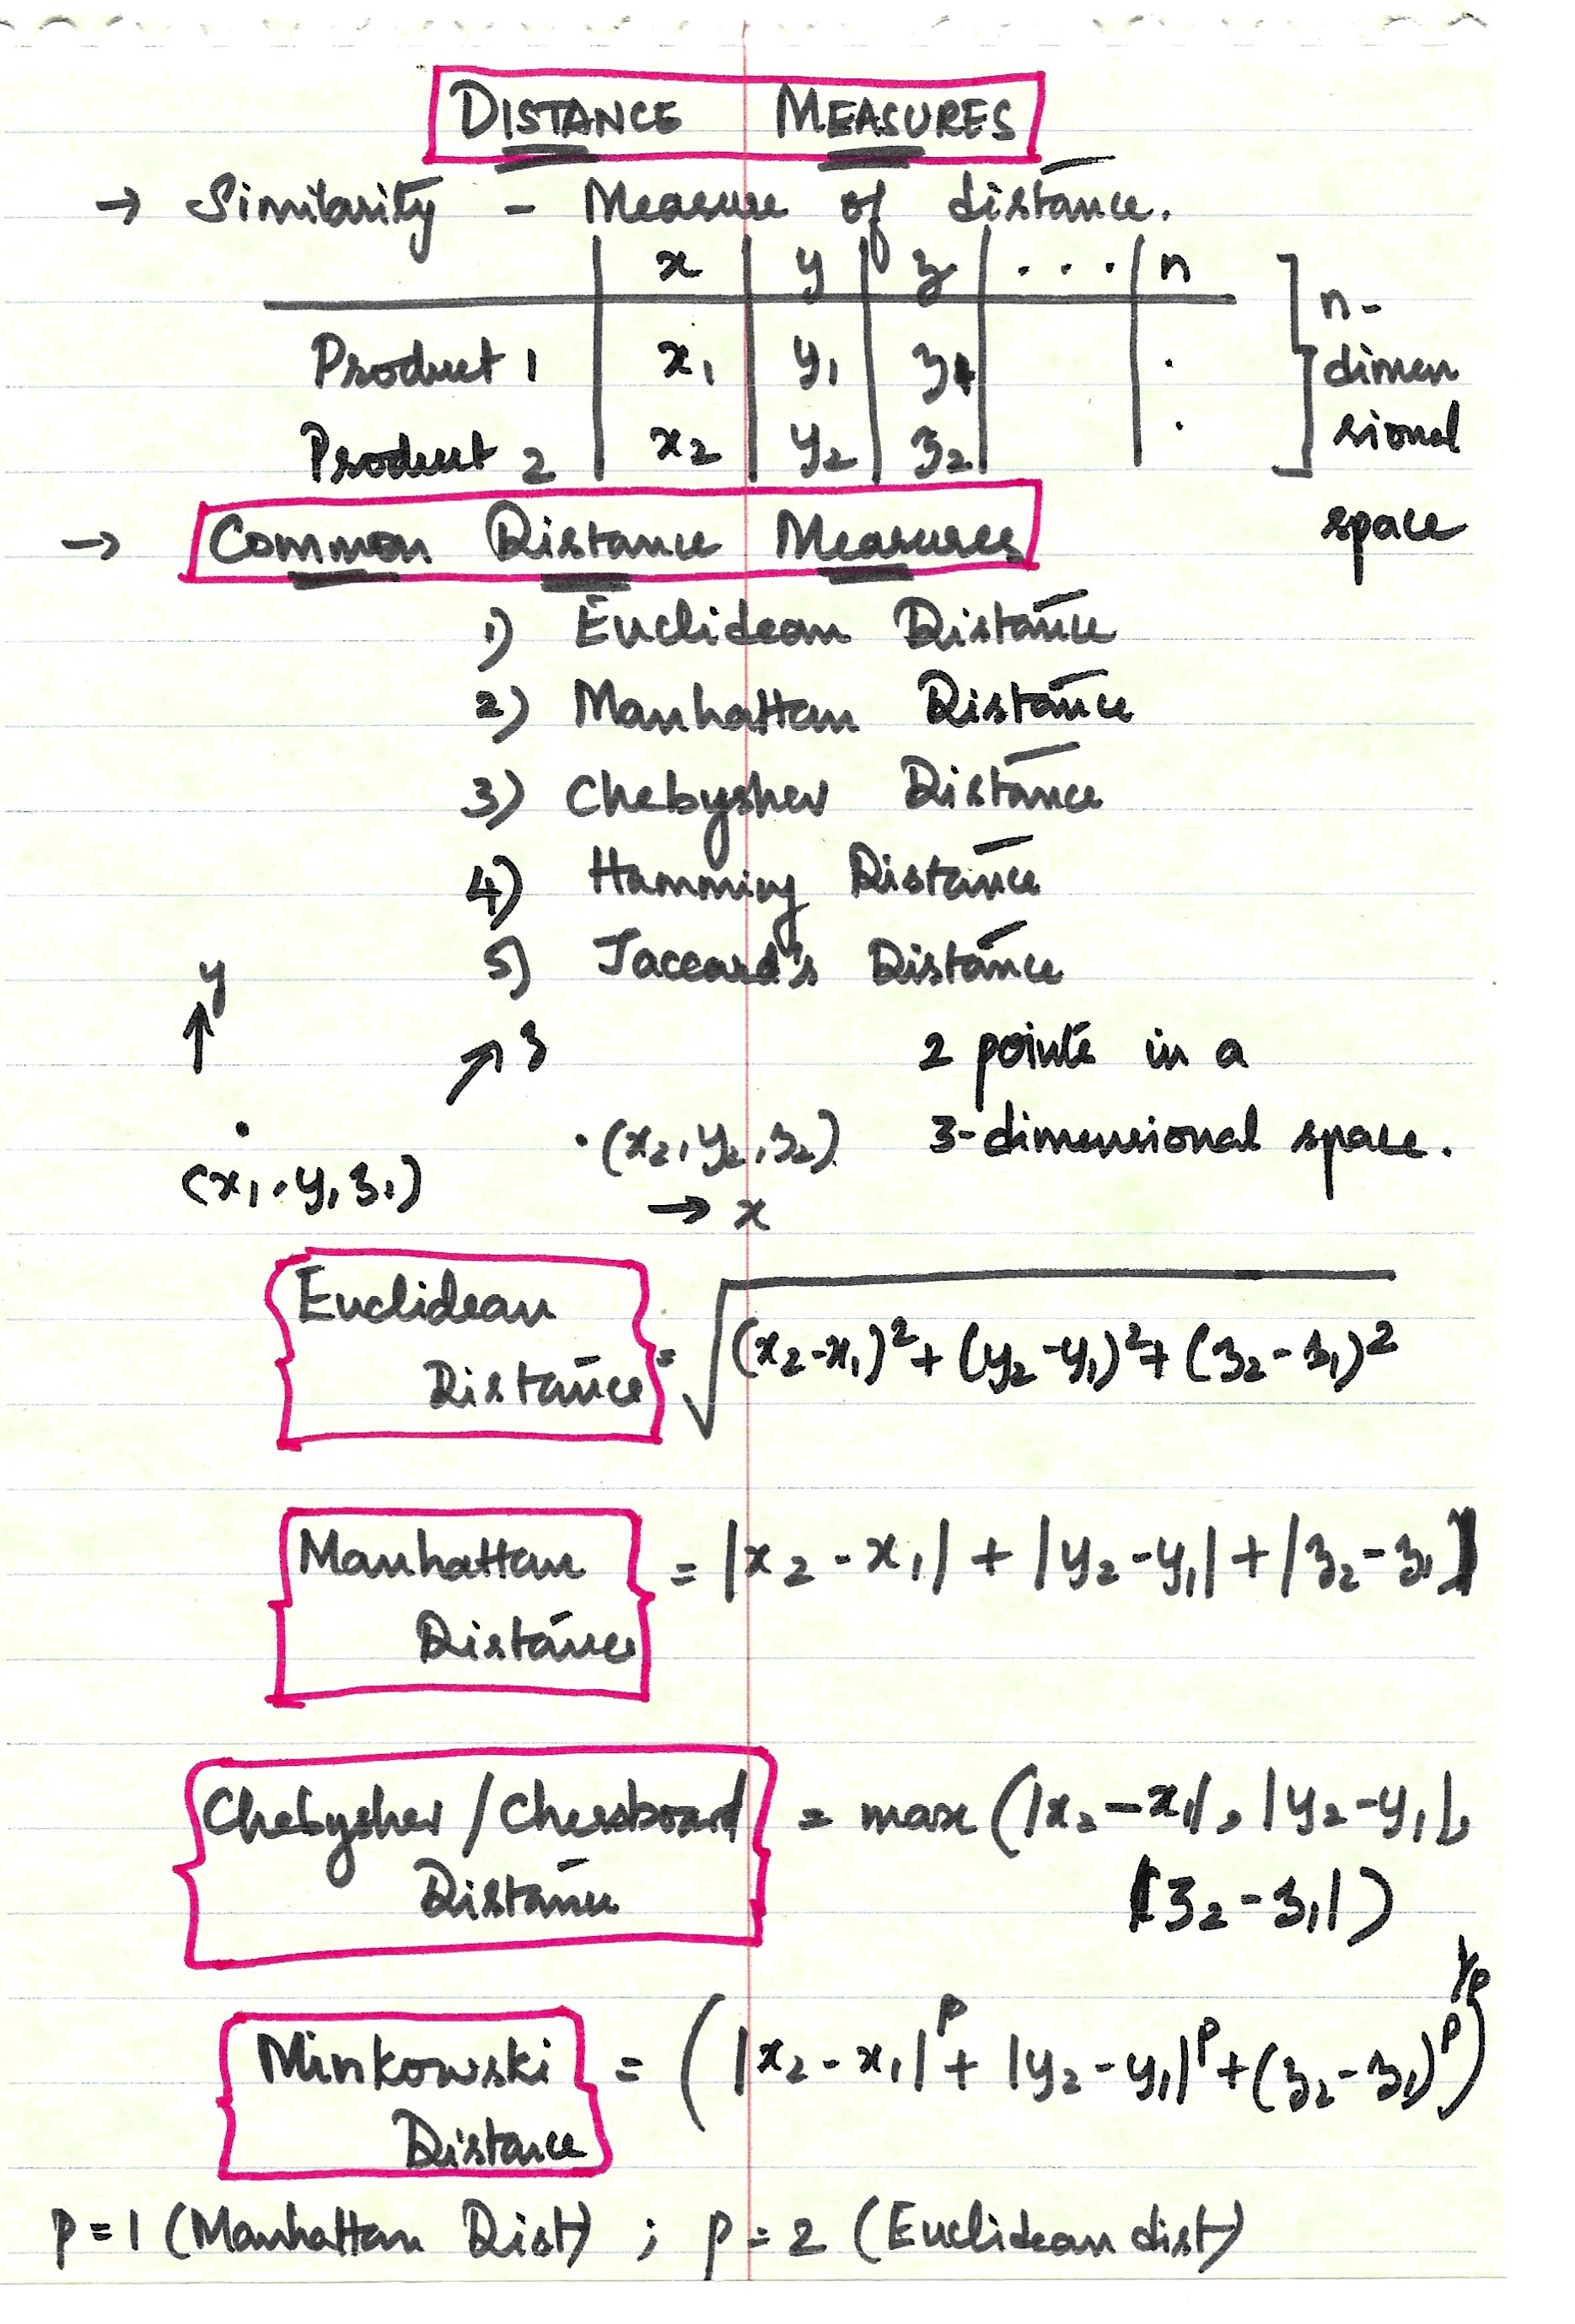 DISTANCE MEASURES
→ Similarity - Measure of distance.
x y z ... n
Product 1 x₁ y₁ z₁ .
Product 2 x₂ y₂ z₂ .
n-
dimen
sional
space
→ Common Distance Measures
1) Euclidean Distance
2) Manhattan Distance
3) Chebyshev Distance
4) Hamming Distance
5) Jaccard's Distance
y
↑
↗ z
2 points in a
3-dimensional space.
.(x₂, y₂, z₂)
(x₁, y₁ z₁)
→ x
Euclidean
Distance = √(x₂-x₁)² + (y₂-y₁)² + (z₂-z₁)²
Manhattan
Distance = |x₂-x₁| + |y₂-y₁| + |z₂-z₁|
Chebyshev / Chessboard
Distance = max (|x₂-x₁|, |y₂-y₁|,
|z₂-z₁|)
Minkowski
Distance = (|x₂-x₁|ᵖ + |y₂-y₁|ᵖ + (z₂-z₁)ᵖ)^1/p
p=1 (Manhattan Dist) ; p=2 (Euclidean dist)